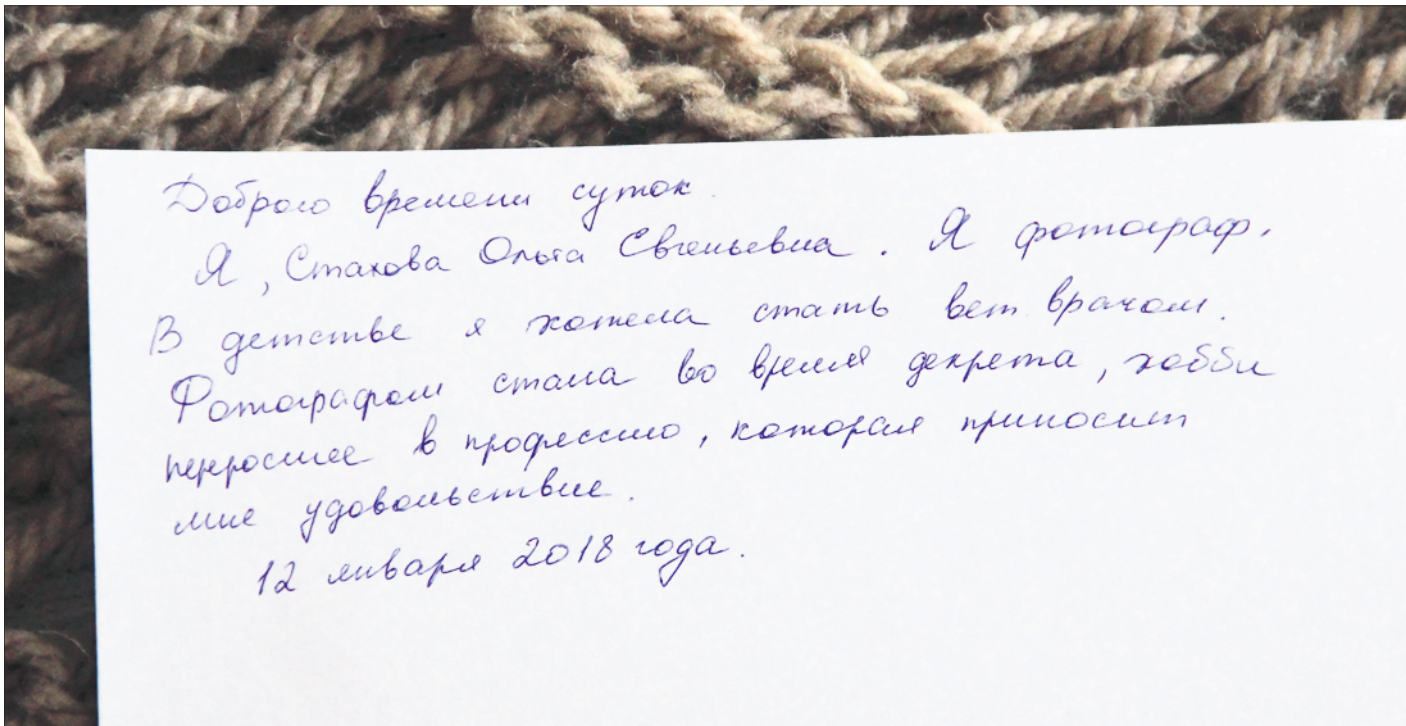 Доброго времени суток.
Я, Стахова Ольга Евгеньевна. Я фотограф.
В детстве я хотела стать вет. врачом.
Фотографом стала во время декрета, хобби
переросшее в профессию, которая приносит
мне удовольствие.
12 января 2018 года.